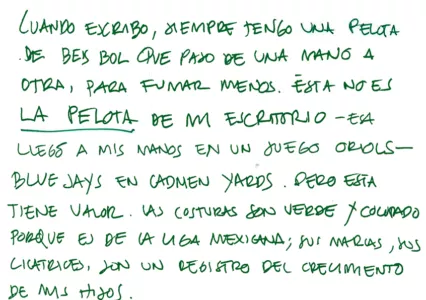 CUANDO ESCRIBO, SIEMPRE TENGO UNA PELOTA
DE BEISBOL QUE PASO DE UNA MANO A
OTRA, PARA FUMAR MENOS. ESTA NO ES
LA PELOTA DE MI ESCRITORIO - ESA
LLEGÓ A MIS MANOS EN UN JUEGO ORIOLS-
BLUE JAYS EN CADMEN YARDS. PERO ESTA
TIENE VALOR. LAS COSTURAS SON VERDE Y COLORADO
PORQUE ES DE LA LIGA MEXICANA; SUS MARCAS, SUS
CICATRICES, SON UN REGISTRO DEL CRECIMIENTO
DE MIS HIJOS.